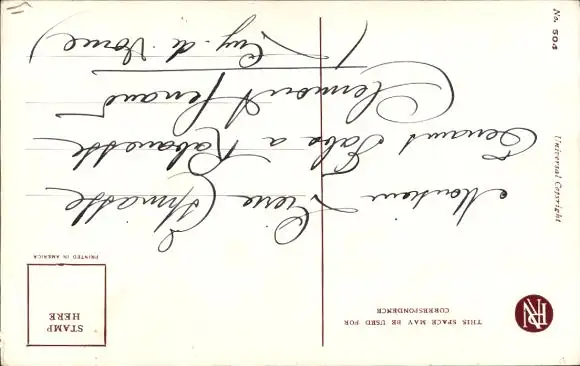 THIS SPACE MAY BE USED FOR
CORRESPONDENCE
STAMP
HERE
PRINTED IN AMERICA
Monsieur Pierre
Tenant Tabac a
Clermont
(Puy. de Dome)
No. 504
Universal Copyright